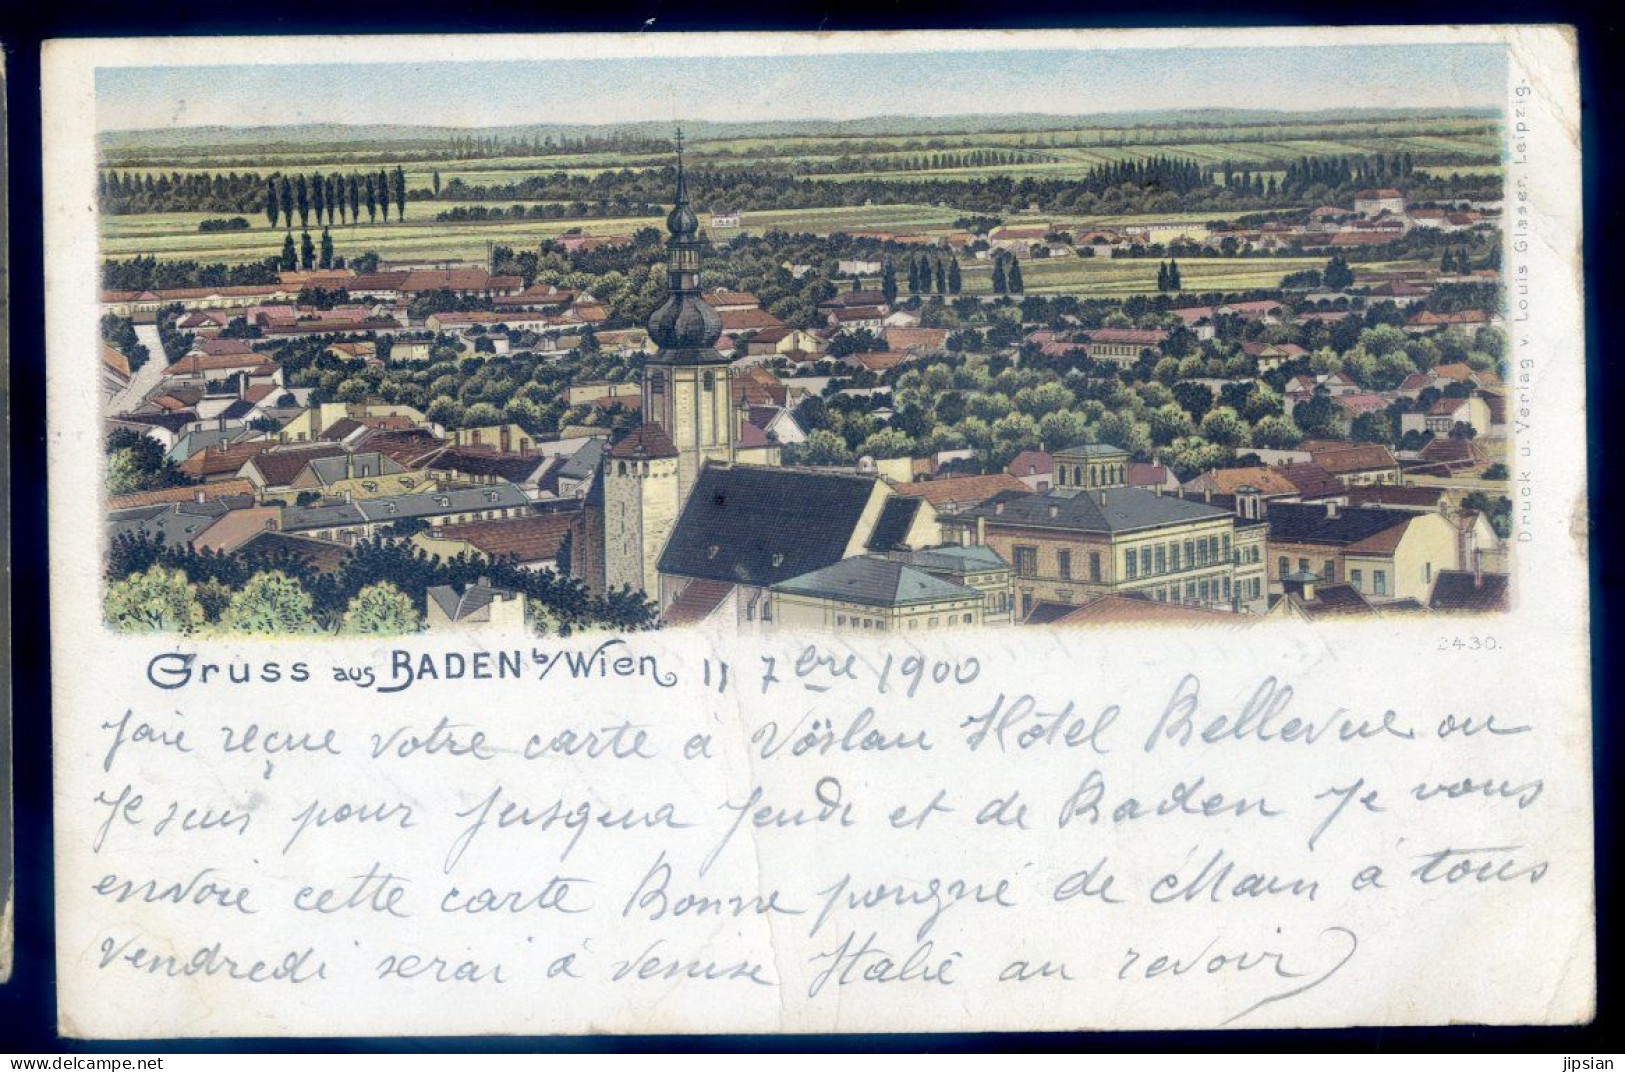 Druck u. Verlag v. Louis Glaser, Leipzig.
2430.
Gruss aus BADEN b/Wien 11 7bre 1900
J'aie reçue votre carte a Vöslau Hôtel Bellevue ou
Je suis pour Jusqua Jeudi et de Baden Je vous
envoie cette carte Bonne poigné de Main a tous
Vendredi serai a Venise Italie au revoir
jipsian